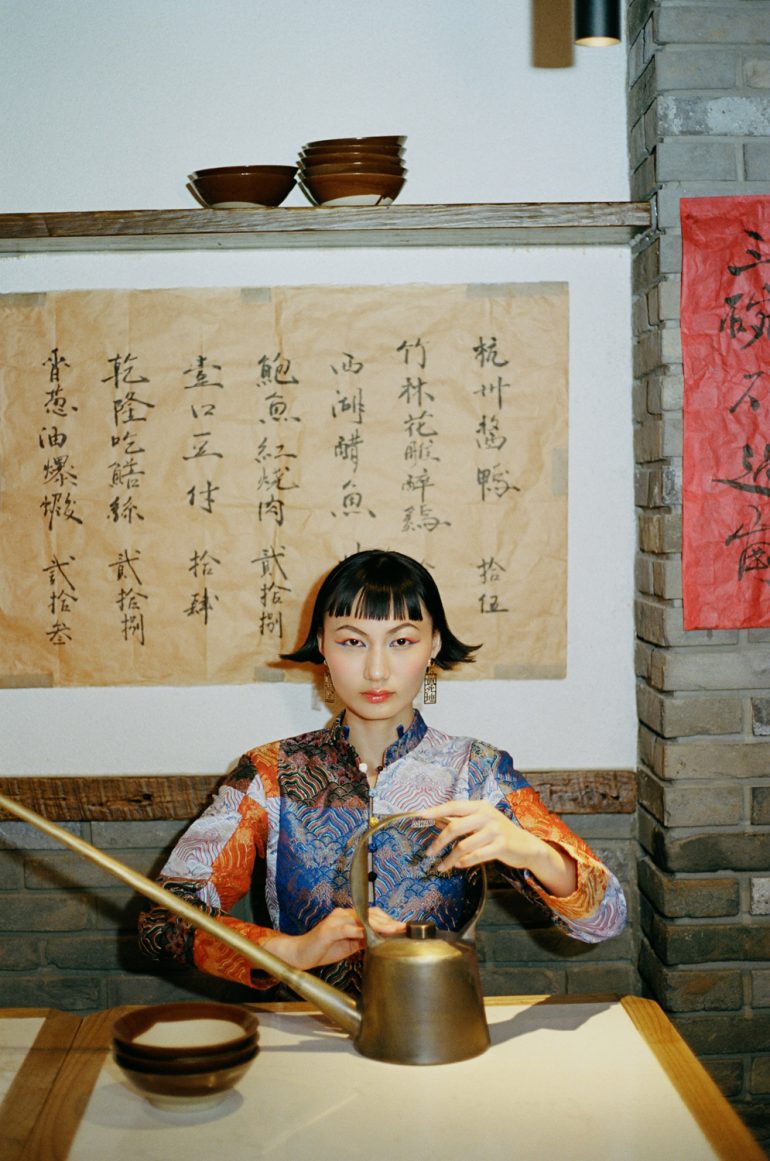 三碗不過崗
杭州醬鴨 拾伍
竹林花雕醉鷄
西湖醋魚
鮑魚紅燒肉 貳拾捌
壹口豆付 拾肆
乾隆吃 絲 貳拾捌
香葱油爆蝦 貳拾叁